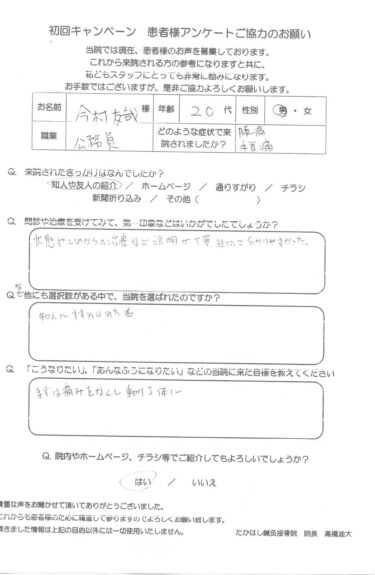 初回キャンペーン 患者様アンケートご協力のお願い
当院では現在、患者様のお声を募集しております。
これから来院される方の参考になりますと共に、
私どもスタッフにとっても非常に励みになります。
お手数ではございますが、是非ご協力よろしくお願いします。
お名前 今村友哉 様 年齢 20 代 性別 男・女
職業 公務員 どのような症状で来院されましたか? 腰痛 手首痛
Q. 来院されたきっかけはなんでしたか?
知人や友人の紹介 / ホームページ / 通りすがり / チラシ
新聞折り込み / その他( )
Q. 問診や治療を受けてみて、第一印象などはいかがでしたでしょうか?
状態やこれからの治療など説明が丁寧 分かりやすかった。
Q. なぜ他にも選択肢がある中で、当院を選ばれたのですか?
知人にすすめのため
Q. 「こうなりたい」、「あんなふうになりたい」などの当院に来た目標を教えてください
まずは痛みをなくし動ける体に
Q. 院内やホームページ、チラシ等でご紹介してもよろしいでしょうか?
はい / いいえ
貴重な声をお聞かせて頂いてありがとうございました。
これからも患者様のために精進して参りますのでよろしくお願い致します。
頂きました情報は上記の目的以外には一切使用いたしません。
たかはし鍼灸接骨院 院長 高橋迪大